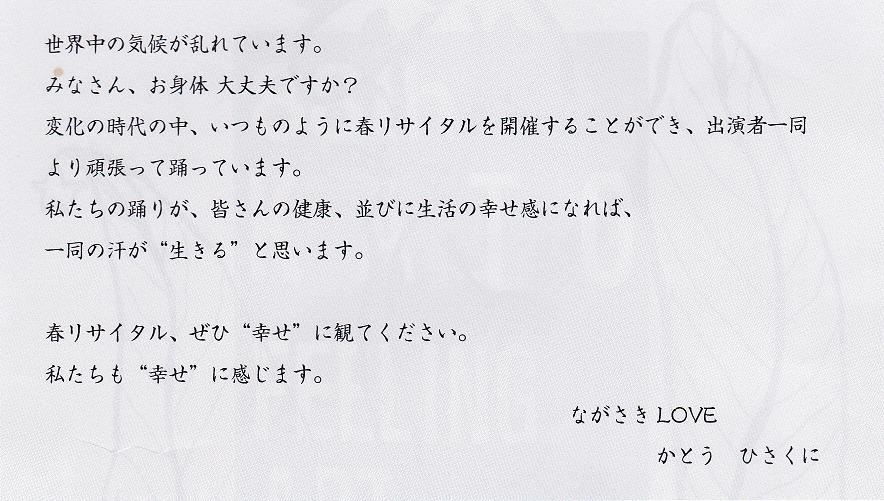 世界中の気候が乱れています。
みなさん、お身体 大丈夫ですか？
変化の時代の中、いつものように春リサイタルを開催することができ、出演者一同
より頑張って踊っています。
私たちの踊りが、皆さんの健康、並びに生活の幸せ感になれば、
一同の汗が“生きる”と思います。
春リサイタル、ぜひ“幸せ”に観てください。
私たちも“幸せ”に感じます。
ながさき LOVE
かとう　ひさくに